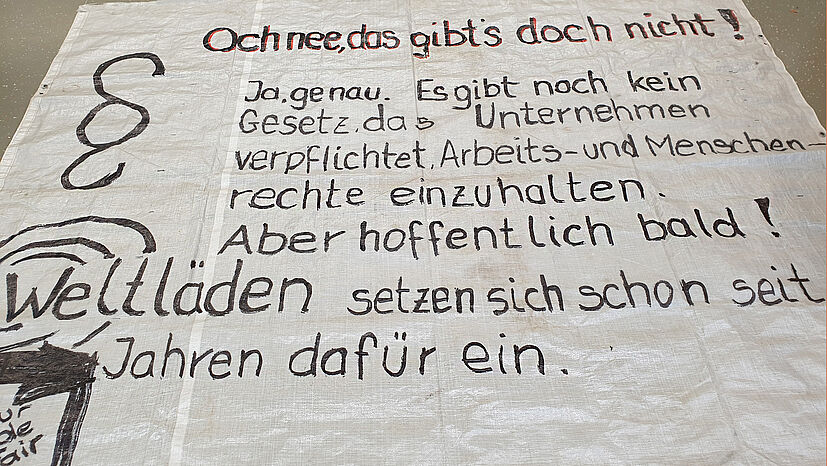 Och nee, das gibt's doch nicht!
§
Ja, genau. Es gibt noch kein
Gesetz, das Unternehmen
verpflichtet, Arbeits- und Menschen-
rechte einzuhalten.
Aber hoffentlich bald!
Weltläden setzen sich schon seit
Jahren dafür ein.